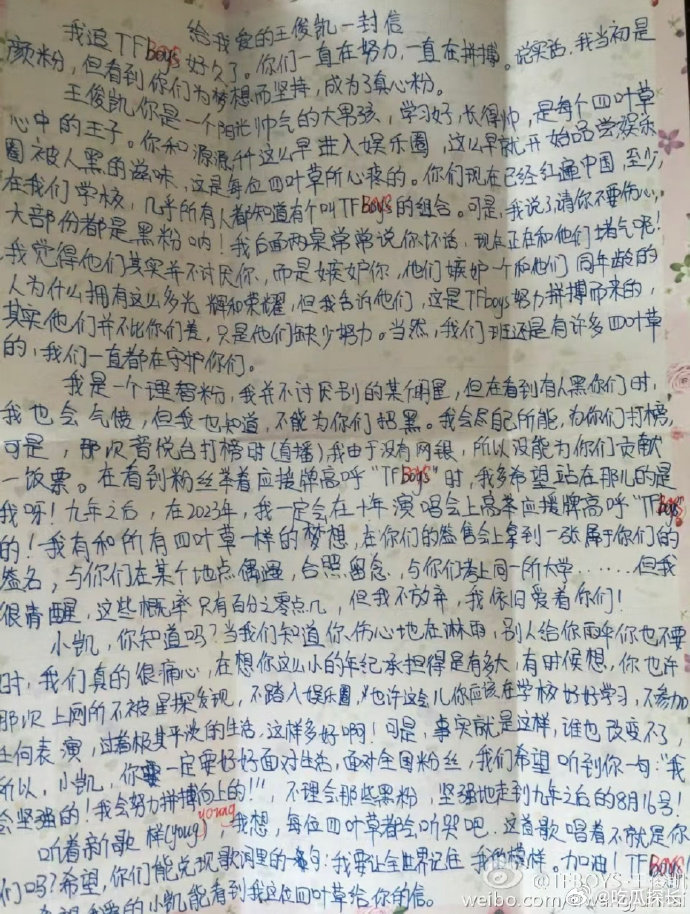 给我爱的王俊凯一封信
我追TFboys好久了。你们一直在努力,一直在拼搏。说实话,我当初是
颜粉,但看到你们为梦想而坚持,成为了真心粉。
王俊凯,你是一个阳光帅气的大男孩,学习好,长得帅,是每个四叶草
心中的王子。你和源源千千这么早进入娱乐圈,这么早就开始品尝娱乐
圈被人黑的滋味,这是每位四叶草所心疼的。你们现在已经红遍中国,至少
在我们学校,几乎所有人都知道有个叫TFboys的组合。可是,我说了请你不要伤心,
大部份都是黑粉呐!我后面两桌常常说你坏话,现在正在和他们堵气呢!
我觉得他们其实并不讨厌你,而是嫉妒你,他们嫉妒一个和他们同年龄的
人为什么拥有这么多光辉和荣耀,但我告诉他们,这是TFboys努力拼搏而来的,
其实他们并不比你们差,只是他们缺少努力。当然,我们班还是有许多四叶草
的,我们一直都在守护你们。
我是一个理智粉,我并不讨厌别的某个明星,但在看到有人黑你们时,
我也会气愤,但我也知道,不能为你们招黑。我会尽自己所能,为你们打榜,
可是,那次音悦台打榜时(直播)我由于没有网银,所以没能为你们贡献
一饭票。在看到粉丝举着应援牌高呼“TFboys”时,我多希望站在那儿的是
我呀!九年之后,在2023年,我一定会在十年演唱会上高举应援牌高呼“TFboys”
的!我有和所有四叶草一样的梦想,在你们的签售会上拿到一张属于你们的
签名,与你们在某个地点偶遇,合照留念,与你们考上同一所大学……但我
很清醒,这些概率只有百分之零点几,但我不放弃,我依旧爱着你们!
小凯,你知道吗?当我们知道你伤心地在淋雨,别人给你雨伞你也不要
时,我们真的很痛心,在想你这么小的年纪承担得是有多大,有时候想,你也许
那次上网所不被星探发现,不踏入娱乐圈,也许这会儿你应该在学校好好学习,不参加
任何表演,过着极其平淡的生活,这样多好啊!可是,事实就是这样,谁也改变不了,
所以,小凯,你一定要好好面对生活,面对全国粉丝,我们希望听到你一句:“我
会坚强的!我会努力拼搏向上的!!!,不理会那些黑粉,坚强地走到九年之后的8月16号!
听着新歌样(young) young,我想,每位四叶草都会听哭吧,这首歌唱着不就是你
们吗?希望,你们能兑现歌词里的一句:我要让全世界记住我的模样。加油!TFboys
希望我爱的小凯能看到我这位四叶草给你的信。
@TFBOYS-王俊凯
@吃瓜探班
weibo.com/